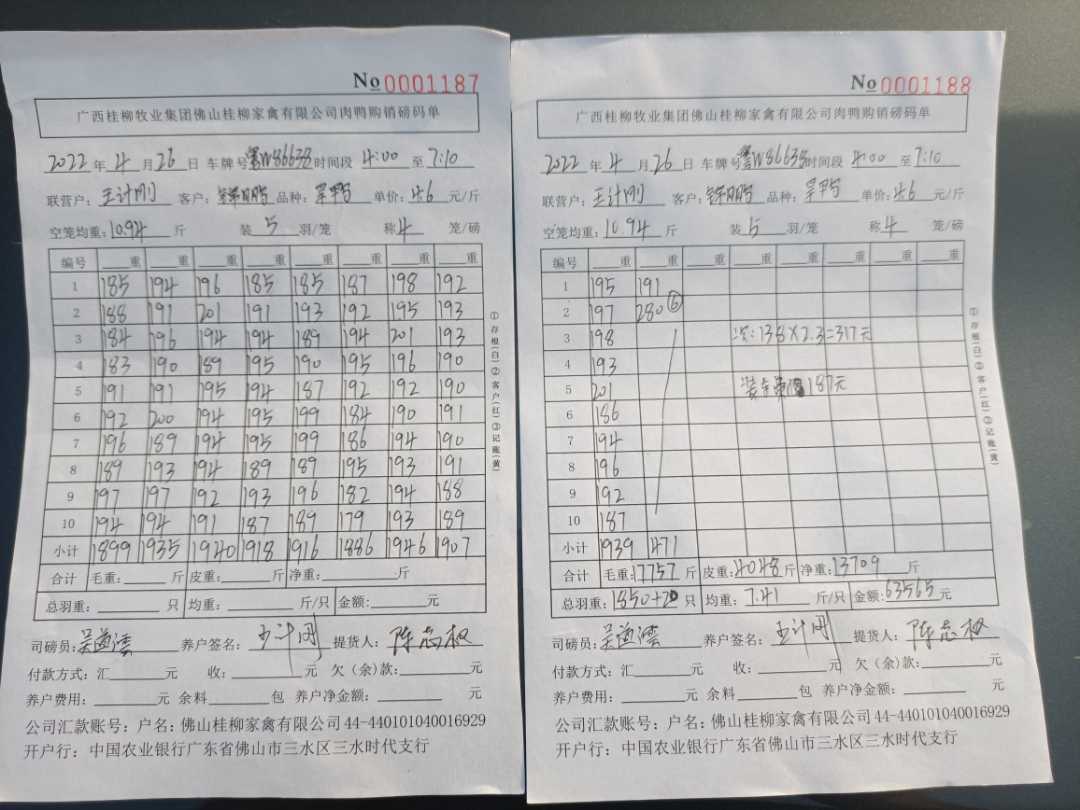 No 0001187
广西桂柳牧业集团佛山桂柳家禽有限公司肉鸭购销磅码单
2022年4月26日 车牌号 W8663 时间段 4:00 至 7:10
联营户：王计刚 客户： 品种： 单价：4.6 元/斤
空笼均重：10.94 斤 装 5 羽/笼 称 4 笼/磅
编号 重 重 重 重 重 重 重 重
1 185 194 196 185 185 187 198 192
2 188 191 201 191 193 192 195 193
3 184 196 194 194 189 194 201 193
4 183 190 189 195 190 195 196 190
5 191 191 195 194 187 192 192 190
6 192 200 194 195 199 184 190 191
7 196 189 194 195 199 186 194 190
8 189 193 194 189 189 195 193 191
9 197 197 192 193 196 182 194 188
10 194 194 191 187 189 179 193 189
小计 1899 1935 1940 1918 1916 1886 1946 1907
合计 毛重： 斤 皮重： 斤 净重： 斤
总羽重： 只 均重： 斤/只 金额： 元
司磅员： 养户签名：王计刚 提货人：陈志权
付款方式：汇 元 收： 元 欠（余）款： 元
养户费用： 元 余料 包 养户净金额： 元
公司汇款账号：户名：佛山桂柳家禽有限公司44-440101040016929
开户行：中国农业银行广东省佛山市三水区三水时代支行
①存根(白)②客户(红)③记账(黄)
No 0001188
广西桂柳牧业集团佛山桂柳家禽有限公司肉鸭购销磅码单
2022年4月26日 车牌号 W8663 时间段 4:00 至 7:10
联营户：王计刚 客户： 品种： 单价：4.6 元/斤
空笼均重：10.94 斤 装 5 羽/笼 称 4 笼/磅
编号 重 重 重 重 重 重 重 重
1 195 191
2 197 280 ⑥
3 198 :138×2.3=317元
4 193
5 201 187元
6 186
7 194
8 196
9 192
10 187
小计 1939 471
合计 毛重：17757 斤 皮重：4048 斤 净重：13709 斤
总羽重：1850+20 只 均重：7.41 斤/只 金额：63565 元
司磅员： 养户签名：王计刚 提货人：陈志权
付款方式：汇 元 收： 元 欠（余）款： 元
养户费用： 元 余料 包 养户净金额： 元
公司汇款账号：户名：佛山桂柳家禽有限公司44-440101040016929
开户行：中国农业银行广东省佛山市三水区三水时代支行
①存根(白)②客户(红)③记账(黄)